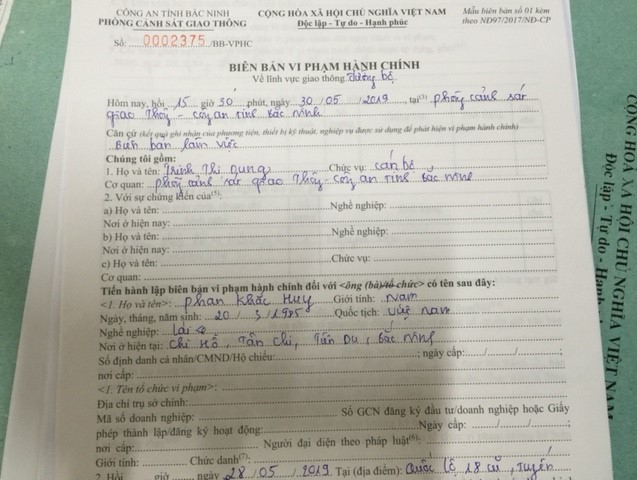 CÔNG AN TỈNH BẮC NINH
PHÒNG CẢNH SÁT GIAO THÔNG
Số: 0002375 /BB-VPHC
CỘNG HÒA XÃ HỘI CHỦ NGHĨA VIỆT NAM
Độc lập - Tự do - Hạnh phúc
Mẫu biên bản số 01 kèm
theo NĐ97/2017/NĐ-CP
BIÊN BẢN VI PHẠM HÀNH CHÍNH
Về lĩnh vực giao thông đường bộ
Hôm nay, hồi 15 giờ 30 phút, ngày 30 / 05 / 2019, tại(3) phòng cảnh sát
giao thông - công an tỉnh Bắc Ninh
Căn cứ (kết quả ghi nhận của phương tiện, thiết bị kỹ thuật, nghiệp vụ được sử dụng để phát hiện vi phạm hành chính)
Biên bản làm việc
Chúng tôi gồm:
1. Họ và tên: Trịnh Thị Dung Chức vụ: cán bộ
Cơ quan: phòng cảnh sát giao thông - công an tỉnh Bắc Ninh
2. Với sự chứng kiến của(5):
a) Họ và tên: Nghề nghiệp:
Nơi ở hiện nay:
b) Họ và tên: Nghề nghiệp:
Nơi ở hiện nay:
c) Họ và tên: Chức vụ:
Cơ quan:
Tiến hành lập biên bản vi phạm hành chính đối với <ông (bà)/tổ chức> có tên sau đây:
<1. Họ và tên>: Phan Khắc Huy Giới tính: Nam
Ngày, tháng, năm sinh: 20 / 3 / 1985 Quốc tịch: Việt Nam
Nghề nghiệp: Lái xe
Nơi ở hiện tại: Chi Hồ, Tân Chi, Tiên Du, Bắc Ninh
Số định danh cá nhân/CMND/Hộ chiếu: ; ngày cấp: / / ;
nơi cấp:
<1. Tên tổ chức vi phạm>:
Địa chỉ trụ sở chính:
Mã số doanh nghiệp: Số GCN đăng ký đầu tư/doanh nghiệp hoặc Giấy
phép thành lập/đăng ký hoạt động: Ngày cấp: / / ;
nơi cấp: Người đại diện theo pháp luật(6):
Giới tính: Chức danh(7):
2. Hồi giờ , ngày 28 / 05 / 2019 Tại (địa điểm): Quốc lộ 18 cũ, tuyến
CỘNG HÒA XÃ HỘI CHỦ NGHĨA VIỆT NAM
Độc lập - Tự do -